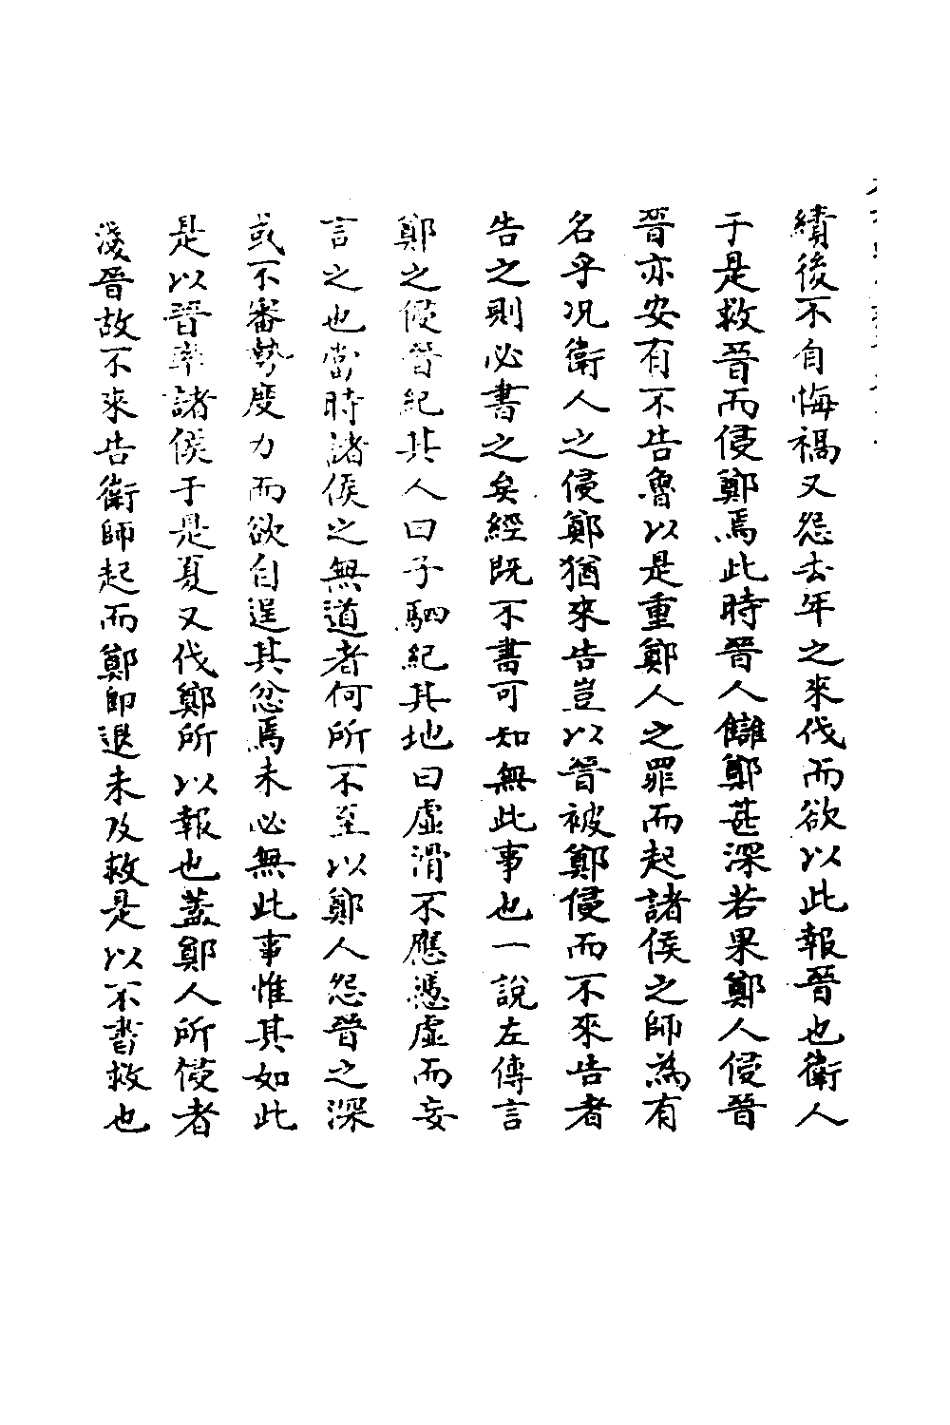 績後不自悔禍又怨去年之來伐而欲以此報晉也衛人
于是救晉而侵鄭焉此時晉人讎鄭甚深若果鄭人侵晉
晉亦安有不告魯以是重鄭人之罪而起諸侯之師為有
名乎况衛人之侵鄭猶來告豈以晉被鄭侵而不來告者
告之則必書之矣經既不書可知無此事也一說左傳言
鄭之侵晉紀其人曰子駟紀其地曰虛滑不應憑虛而妄
言之也當時諸侯之無道者何所不至以鄭人怨晉之深
或不審勢度力而欲自逞其忿焉未必無此事惟其如此
是以晉率諸侯于是夏又伐鄭所以報也蓋鄭人所侵者
淺晉故不來告衛師起而鄭師退未及救是以不書救也